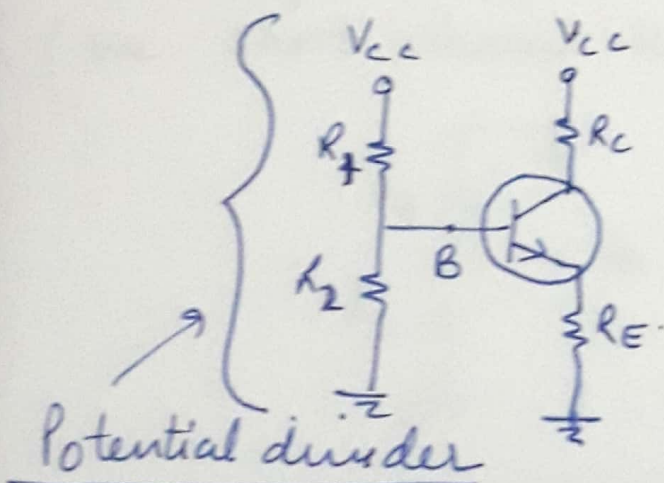 Vcc
Vcc
R1
Rc
B
R2
RE
Potential divider